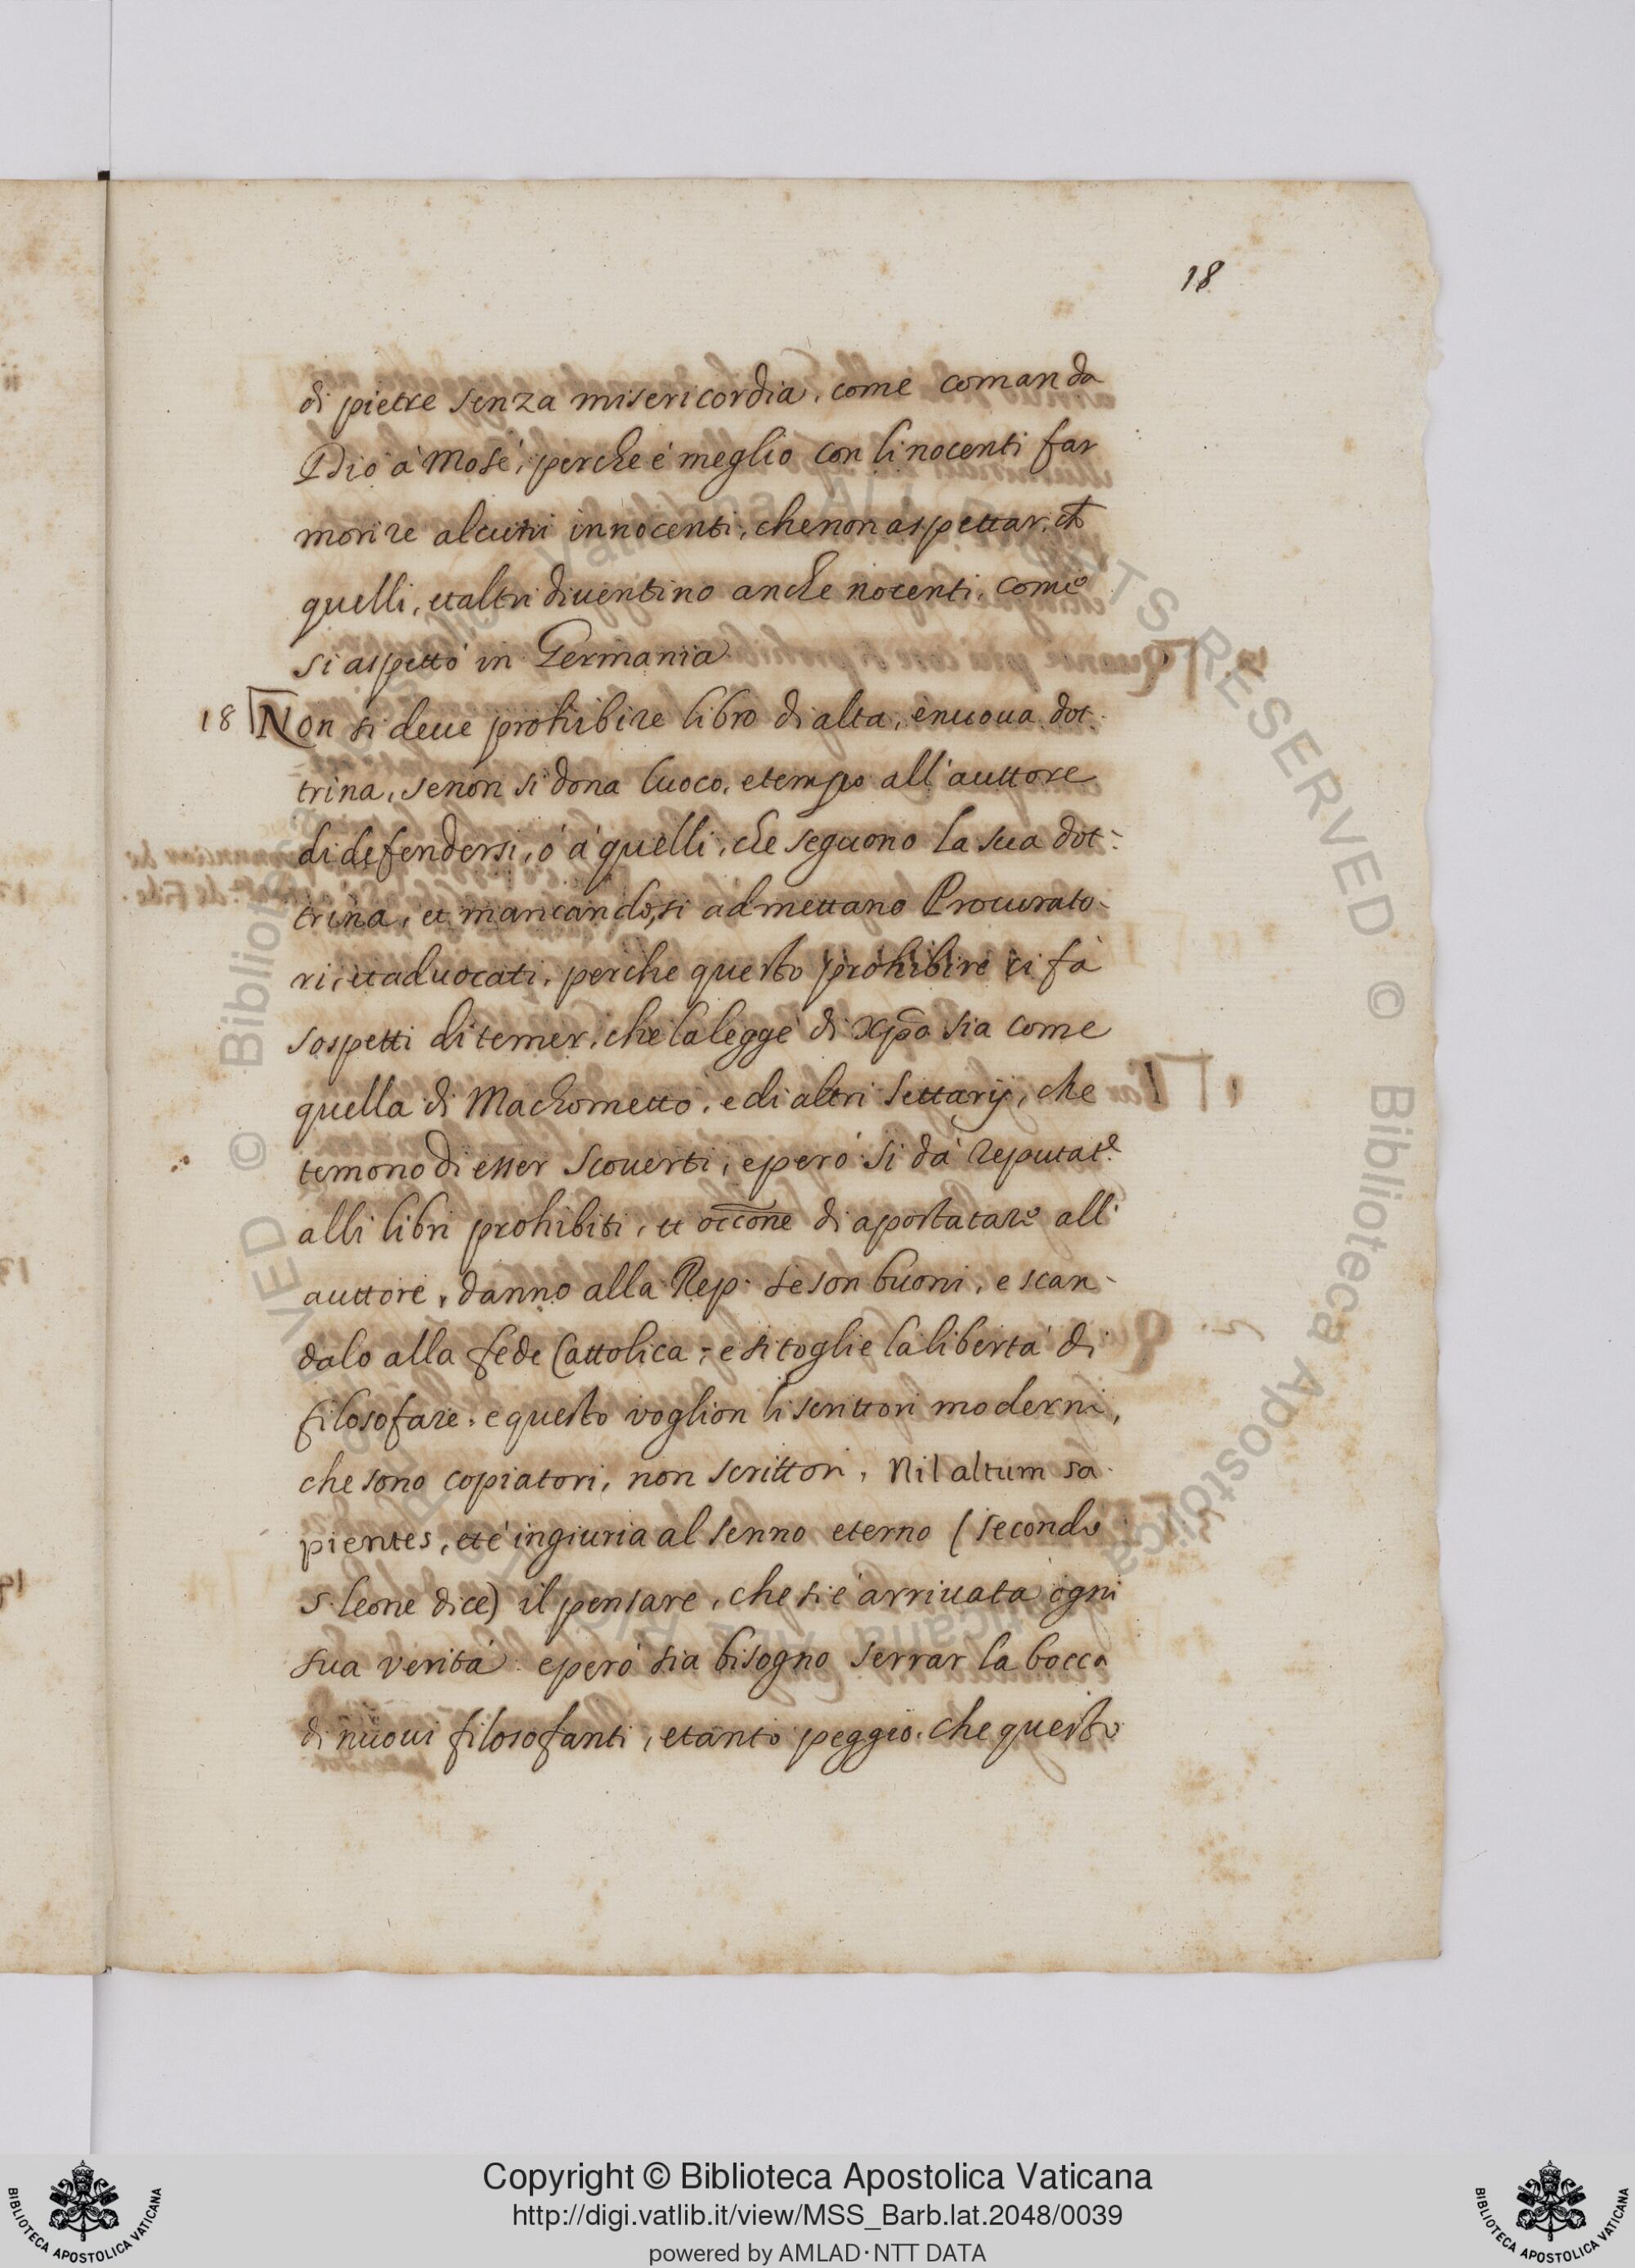 18
di pietre senza misericordia, come comanda
Idio à Mosè, perche è meglio con li nocenti far
morire alcuni innocenti, che non aspettar, ch̃
quelli, et altri diventino anche nocenti, come
si aspettò in Germania
18 Non si deue prohibire libro di alta, è nuoua dot-
trina, se non si dona luoco, e tempo all'auttore
di defendersi, ò à quelli, che seguono la sua dot-
trina, et mancando, si admettano Procurato-
ri, et aduocati, perche questo prohibire ci fà
sospetti di temer, che la legge di Xp̃o sia come
quella di Machometto, e di altri Settarij, che
temono di esser scouerti, e però si dà reputat.e
alli libri prohibiti, et occ̃one di apostatare all'
auttore, danno alla Rep. se son buoni, e scan-
dalo alla fede Cattolica, e si toglie la libertà di
filosofare, e questo voglion li scrittori moderni,
che sono copiatori, non scrittori, Nil altum sa-
pientes, et è ingiuria al senno eterno (secondo
S. Leone dice) il pensare, che si è arriuata ogni
sua verità e però sia bisogno serrar la bocca
di nuoui filosofanti, e tanto peggio, che questo
Copyright © Biblioteca Apostolica Vaticana
http://digi.vatlib.it/view/MSS_Barb.lat.2048/0039
powered by AMLAD·NTT DATA
BIBLIOTECA APOSTOLICA VATICANA
BIBLIOTECA APOSTOLICA VATICANA